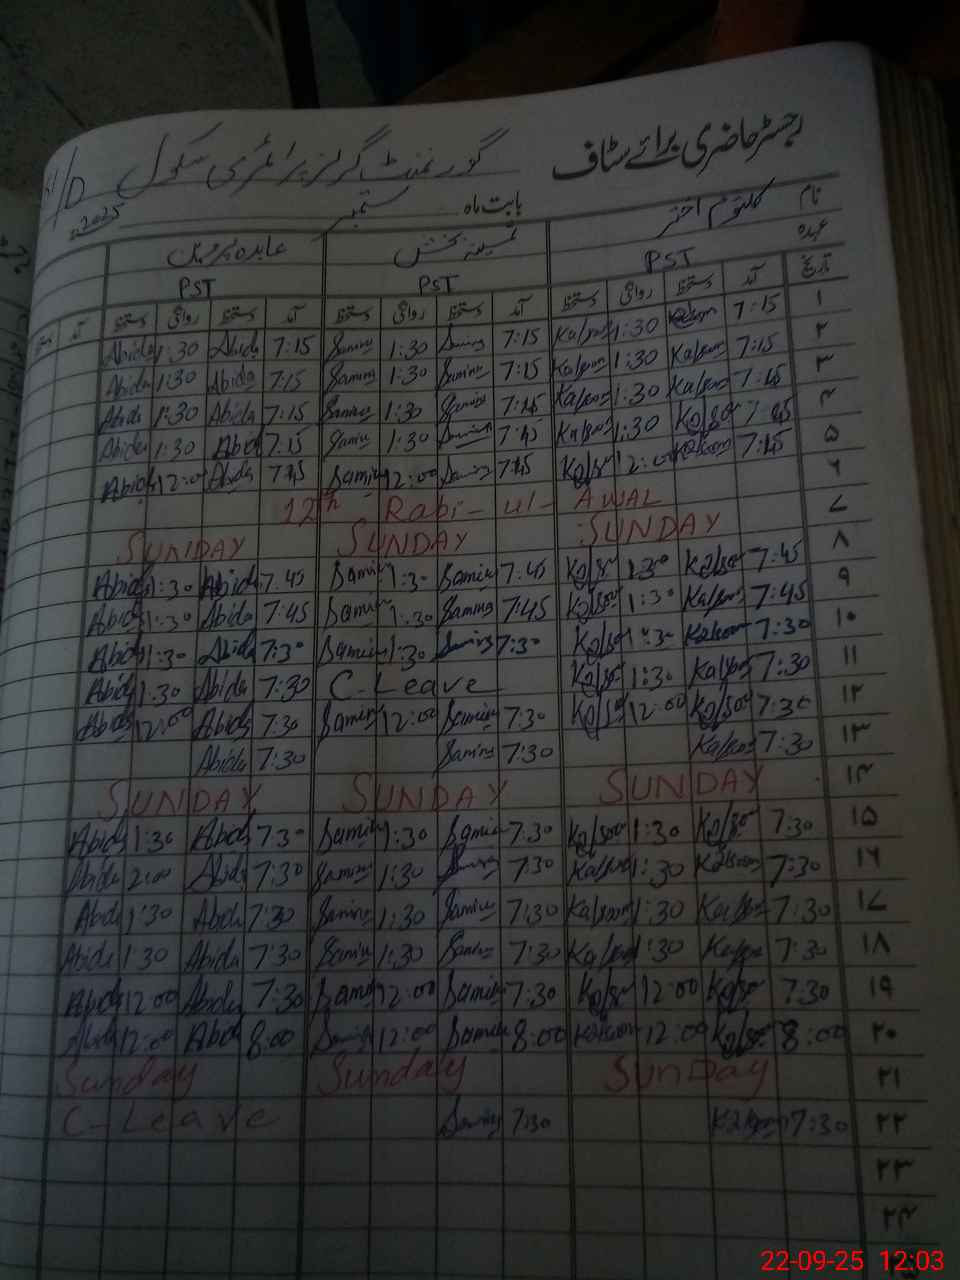 رجسٹر حاضری برائے سٹاف گورنمنٹ گرلز پرائمری سکول
نام کلثوم اختر بابت ماہ ستمبر 2025
عہدہ PST ثمینہ بخش PST عابدہ PST
تاریخ آمد دستخط روانگی دستخط آمد دستخط روانگی دستخط آمد دستخط روانگی دستخط آمد
۱ 7:15 Kalsoom 1:30 Kalsoom 7:15 Samina 1:30 Samina 7:15 Abida 1:30 Abida
۲ 7:15 Kalsoom 1:30 Kalsoom 7:15 Samina 1:30 Samina 7:15 Abida 1:30 Abida
۳ 7:15 Kalsoom 1:30 Kalsoom 7:15 Samina 1:30 Samina 7:15 Abida 1:30 Abida
۴ 7:45 Kalsoom 1:30 Kalsoom 7:45 Samina 1:30 Samina 7:15 Abida 1:30 Abida
۵ 7:45 Kalsoom 12:00 Kalsoom 7:45 Samina 12:00 Samina 7:45 Abida 12:00 Abida
۶ 12th Rabi-ul-AWAL
۷ SUNDAY SUNDAY SUNDAY
۸ 7:45 Kalsoom 1:30 Kalsoom 7:45 Samina 1:30 Samina 7:45 Abida 1:30 Abida
۹ 7:45 Kalsoom 1:30 Kalsoom 7:45 Samina 1:30 Samina 7:45 Abida 1:30 Abida
۱۰ 7:30 Kalsoom 1:30 Kalsoom 7:30 Samina 1:30 Samina 7:30 Abida 1:30 Abida
۱۱ 7:30 Kalsoom 1:30 Kalsoom C-Leave 7:30 Abida 1:30 Abida
۱۲ 7:30 Kalsoom 12:00 Kalsoom 7:30 Samina 12:00 Samina 7:30 Abida 12:00 Abida
۱۳ 7:30 Kalsoom 7:30 Samina 7:30 Abida
۱۴ SUNDAY SUNDAY SUNDAY
۱۵ 7:30 Kalsoom 1:30 Kalsoom 7:30 Samina 1:30 Samina 7:30 Abida 1:30 Abida
۱۶ 7:30 Kalsoom 1:30 Kalsoom 7:30 Samina 1:30 Samina 7:30 Abida 2:00 Abida
۱۷ 7:30 Kalsoom 1:30 Kalsoom 7:30 Samina 1:30 Samina 7:30 Abida 1:30 Abida
۱۸ 7:30 Kalsoom 1:30 Kalsoom 7:30 Samina 1:30 Samina 7:30 Abida 1:30 Abida
۱۹ 7:30 Kalsoom 12:00 Kalsoom 7:30 Samina 12:00 Samina 7:30 Abida 12:00 Abida
۲۰ 8:00 Kalsoom 12:00 Kalsoom 8:00 Samina 12:00 Samina 8:00 Abida 12:00 Abida
۲۱ SUNDAY Sunday Sunday
۲۲ 7:30 Kalsoom 7:30 Samina C-Leave
۲۳
۲۴
22-09-25 12:03